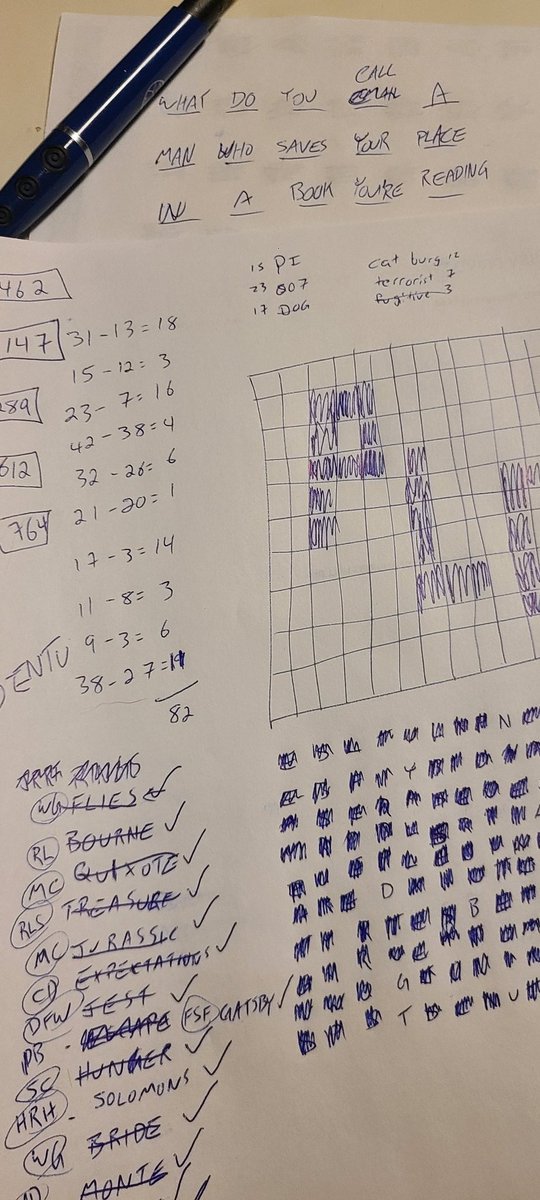 CALL
WHAT DO YOU A
MAN WHO SAVES YOUR PLACE
IN A BOOK YOU'RE READING
15 PI
23 007
17 DOG
cat burg 12
terrorist 7
fugitive 3
462
147
289
612
764
31-13=18
15-12=3
23-7=16
42-38=4
32-26=6
21-20=1
17-3=14
11-8=3
9-3=6
38-27=11
82
ENTU
WG FLIES ✓
RL BOURNE ✓
MC QUIXOTE ✓
RLS TREASURE ✓
MC JURASSIC ✓
CD EXPECTATIONS ✓
DFW JEST ✓
PB - FSF GATSBY ✓
SC HUNGER ✓
HRH - SOLOMONS ✓
WG BRIDE ✓
MONTE ✓
N
Y
D
B
R
G
T U